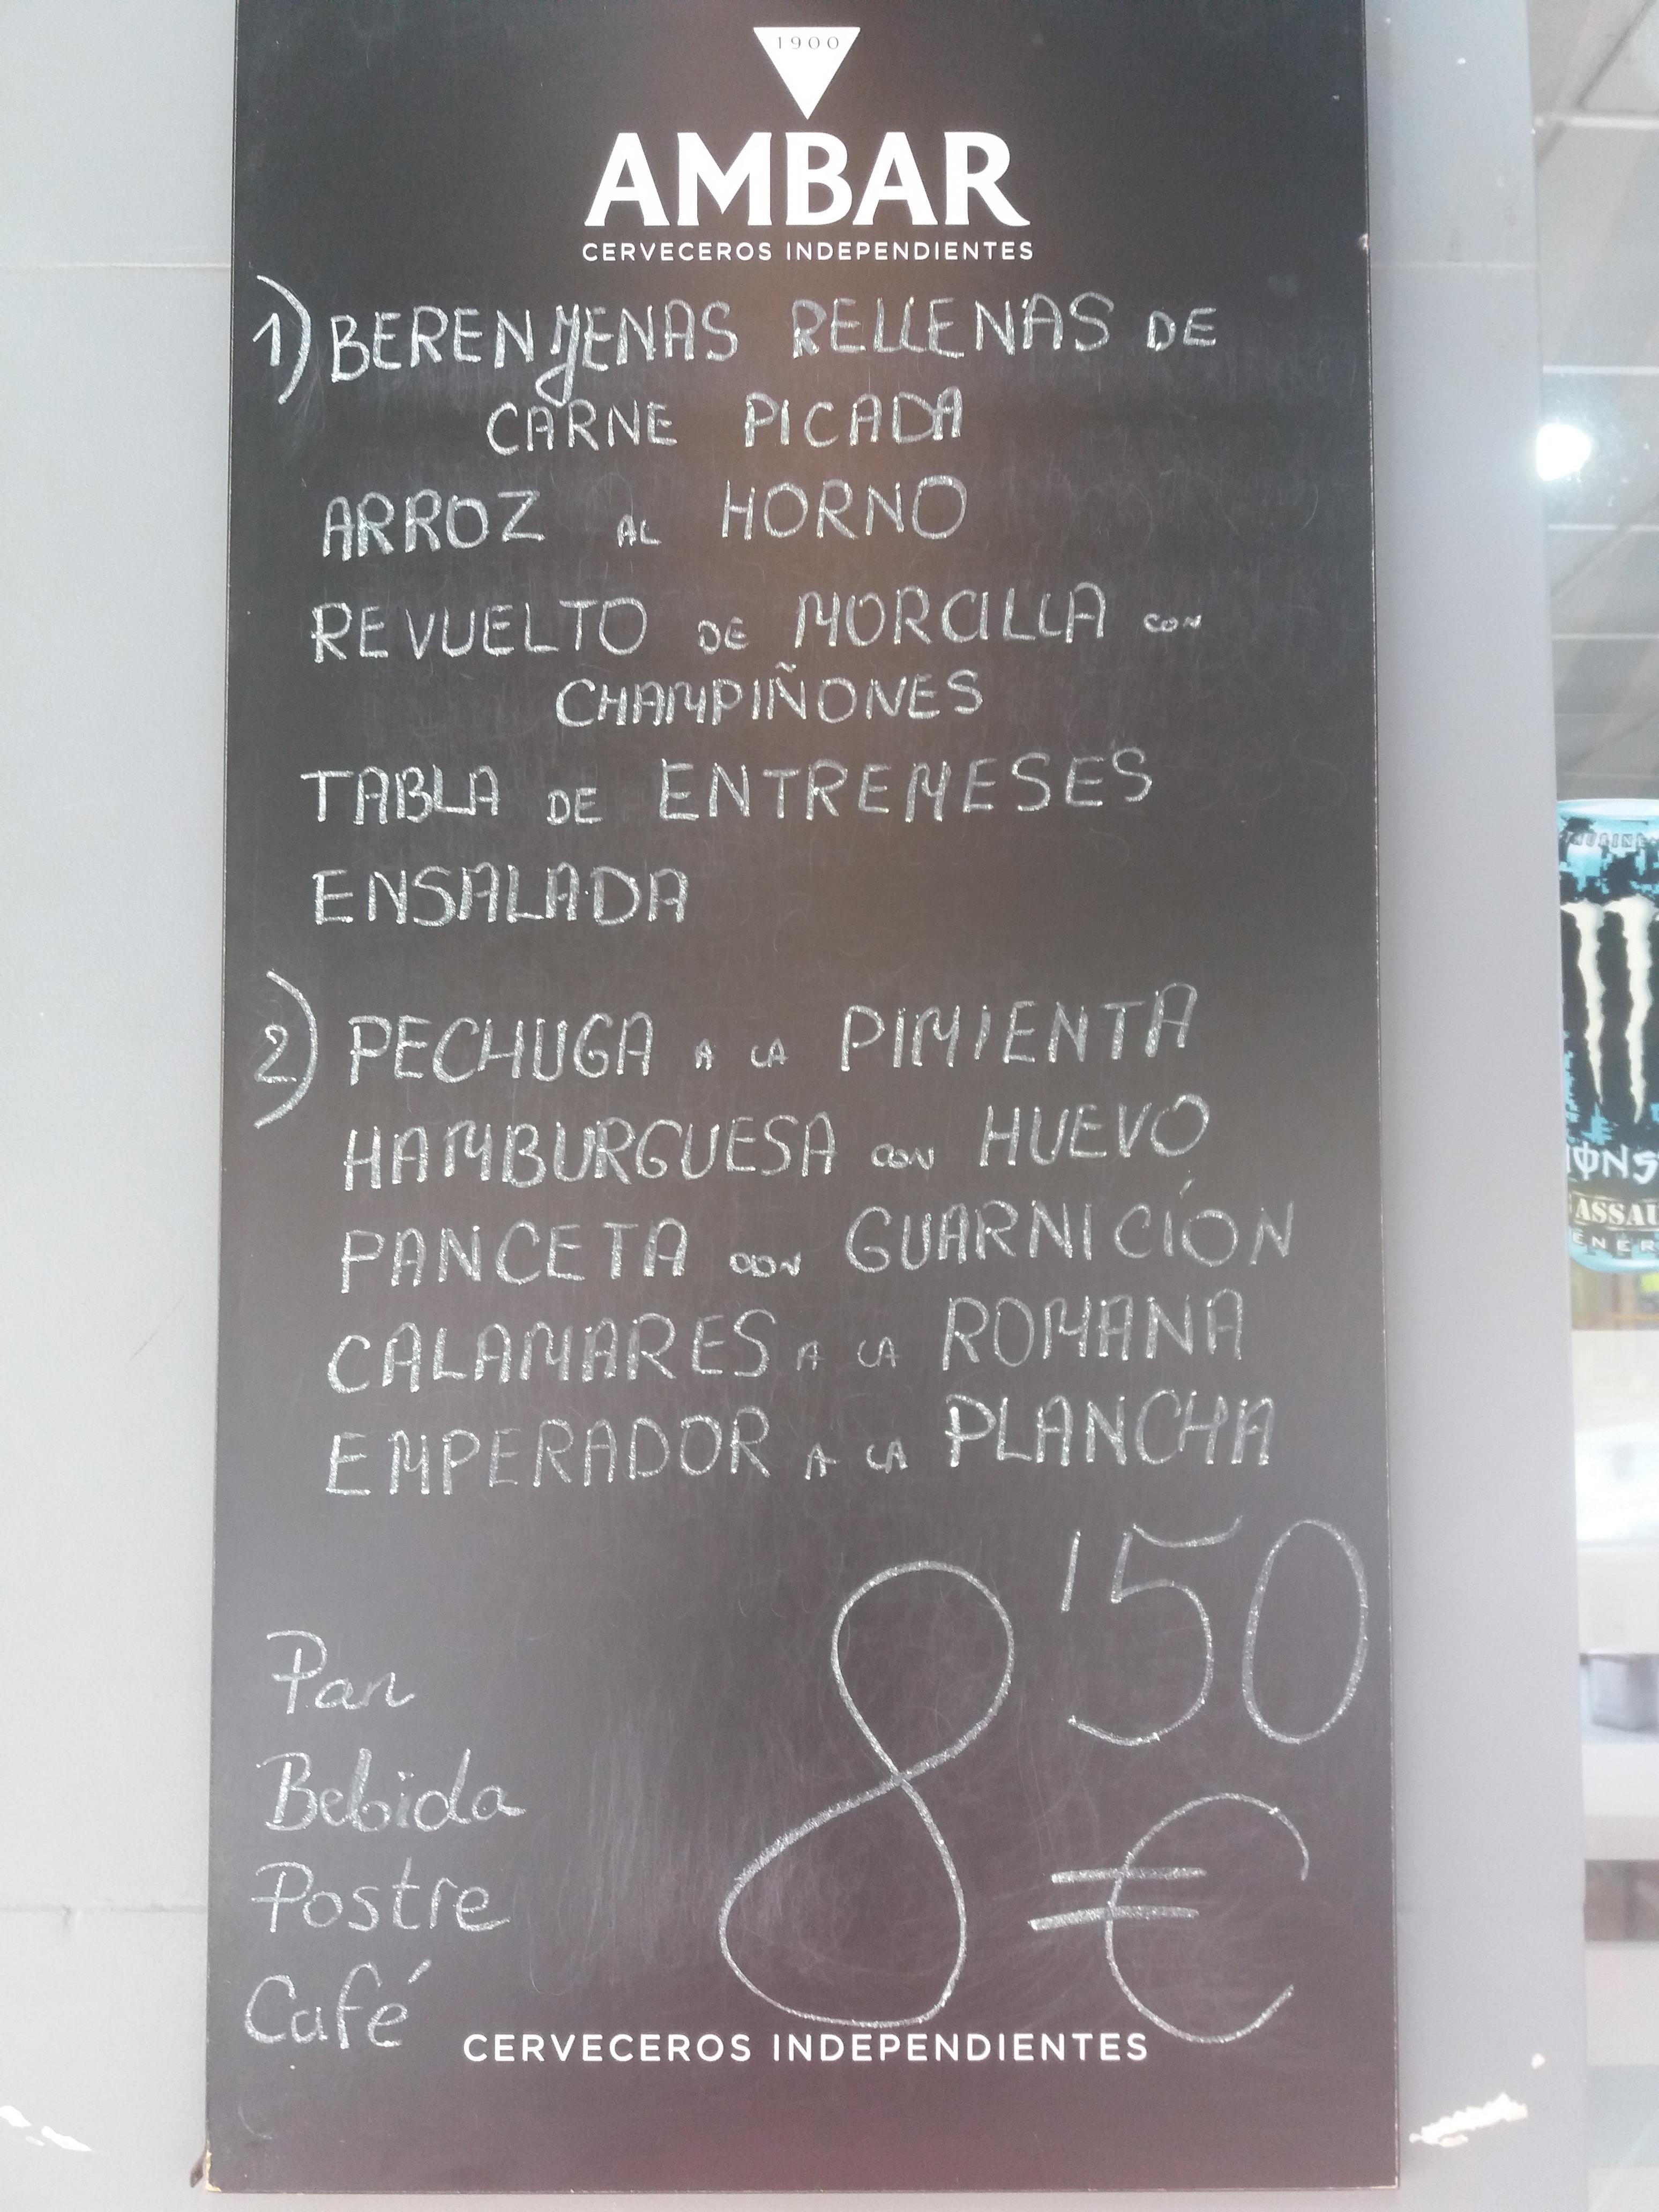 1900
AMBAR
CERVECEROS INDEPENDIENTES
1) BERENJENAS RELLENAS DE
CARNE PICADA
ARROZ AL HORNO
REVUELTO DE MORCILLA CON
CHAMPIÑONES
TABLA DE ENTREMESES
ENSALADA
2) PECHUGA A LA PIMIENTA
HAMBURGUESA CON HUEVO
PANCETA CON GUARNICIÓN
CALAMARES A LA ROMANA
EMPERADOR A LA PLANCHA
8'50
€
Pan
Bebida
Postre
Café
CERVECEROS INDEPENDIENTES